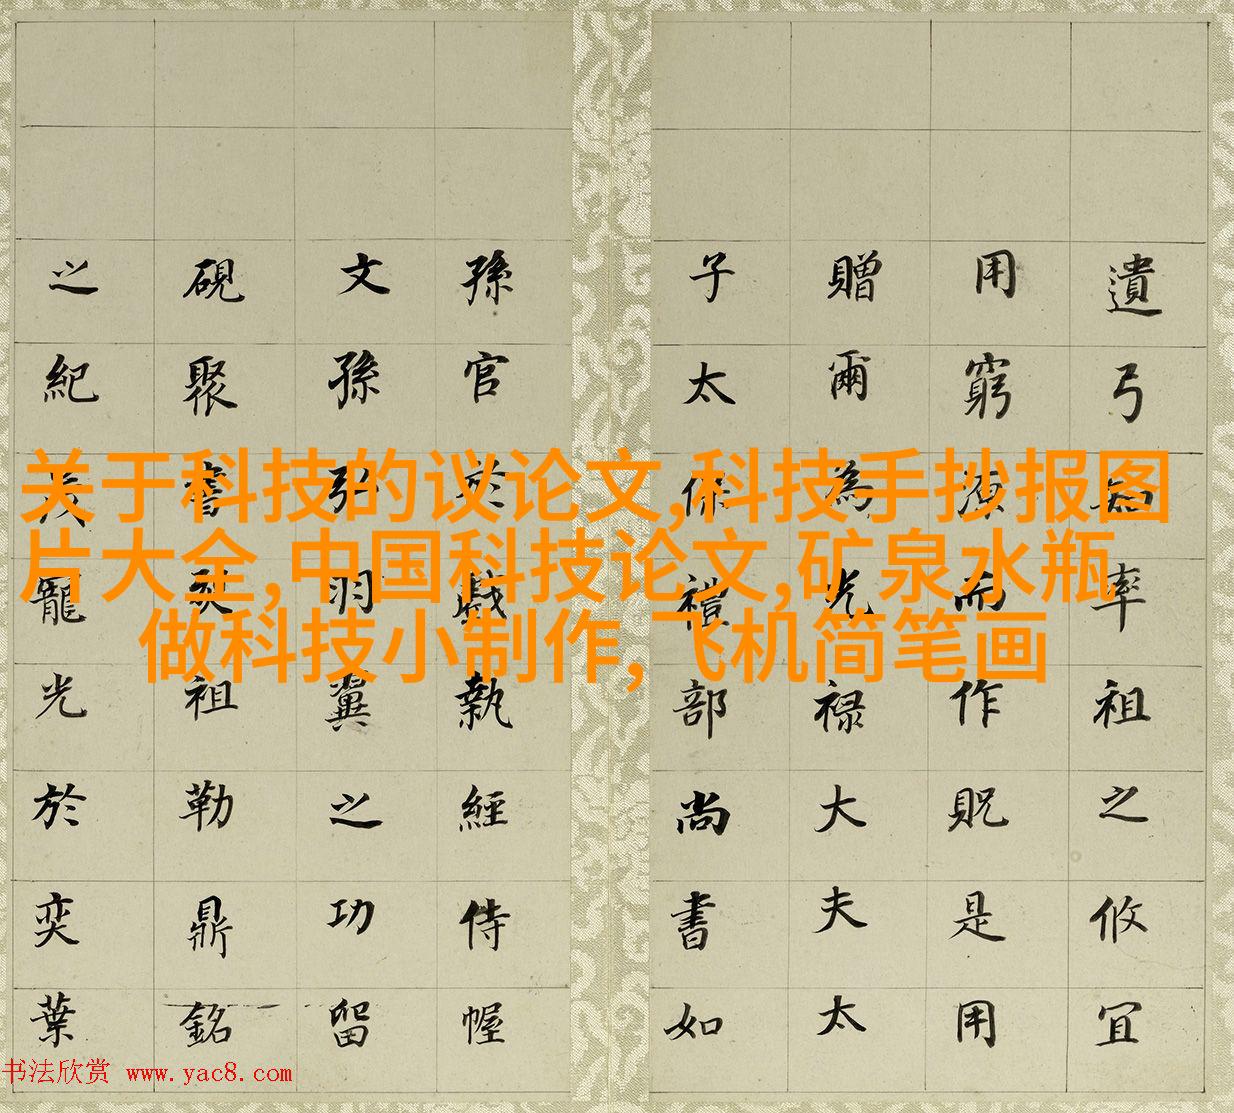 遺弓知率祖之攸宜
用窮源而作貺是用
贈爾為光祿大夫太
子太保禮部尚書如
孫官於戲執經侍幄
文孫弘羽翼之功留
硯聚書爰祖勒鼎銘
之紀茂寵光於奕葉
关于科技的议论文,科技手抄报图
片大全,中国科技论文,矿泉水瓶
做科技小制作,飞机简笔画
书法欣赏 www.yac8.com